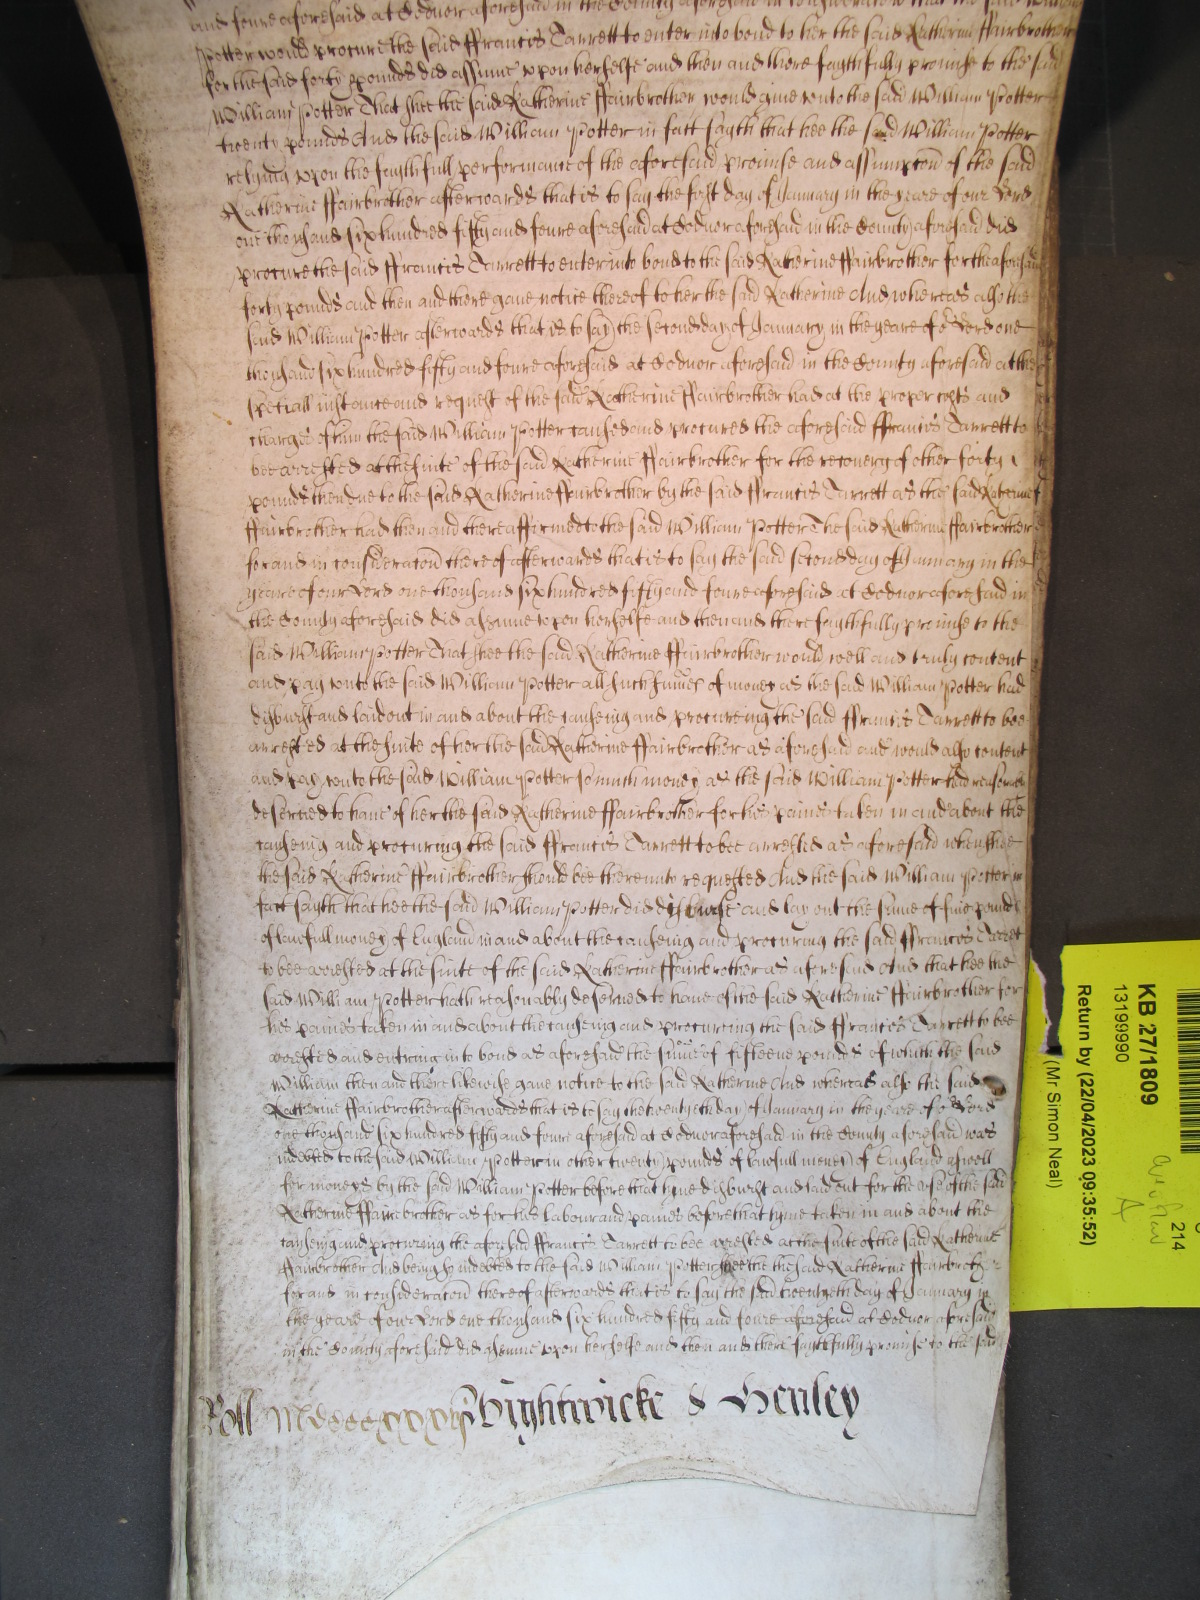 and foure aforesaid at Codnor aforesaid in the County aforesaid in consideracon that the said William
Potter would procure the said ffrancis Tarrett to enter into bond to her the said Katherine ffairbrother
for the said forty pounds did assume vpon herselfe and then and there faythfully promise to the said
William Potter That shee the said Katherine ffairbrother would giue vnto the said William Potter
twenty pounds And the said William Potter in fact sayth that hee the said William Potter
relying vpon the faythfull performance of the aforesaid promise and assumpcon of the said
Katherine ffairbrother afterwards that is to say the first day of January in the yeare of our Lord
one thousand six hundred fifty and foure aforesaid at Codnor aforesaid in the County aforesaid did
procure the said ffrancis Tarrett to enter into bond to the said Katherine ffairbrother for the aforesaid
forty pounds and then and there gaue notice thereof to her the said Katherine And whereas also the
said William Potter afterwards that is to say the second day of January in the yeare of or Lord one
thousand six hundred fifty and foure aforesaid at Codnor aforesaid in the County aforesaid at the
speciall instance and request of the said Katherine ffairbrother had at the proper costs and
charges of him the said William Potter caused and procured the aforesaid ffrancis Tarrett to
bee arrested at the suite of the said Katherine ffairbrother for the recouery of other forty
pounds then due to the said Katherine ffairbrother by the said ffrancis Tarrett as the said Katherine
ffairbrother had then and there affirmed to the said William Potter The said Katherine ffairbrother
for and in consideracon thereof afterwards that is to say the said second day of January in the
yeare of our Lord one thousand six hundred fifty and foure aforesaid at Codnor aforesaid in
the County aforesaid did assume vpon herselfe and then and there faythfully promise to the
said William Potter That shee the said Katherine ffairbrother would well and truly content
and pay vnto the said William Potter all such summes of money as the said William Potter had
disburst and laid out in and about the causeing and procureing the said ffrancis Tarrett to bee
arrested at the suite of her the said Katherine ffairbrother as aforesaid and would also content
and pay vnto the said William Potter so much money as the said William Potter had reasonably
deserued to haue of her the said Katherine ffairbrother for his paines taken in and about the
causeing and procuring the said ffrancis Tarrett to bee arrested as aforesaid when shee
the said Katherine ffairbrother should bee thereunto requested And the said William Potter in
fact sayth that hee the said William Potter did disburse and lay out the summe of fiue pounds
of lawfull money of England in and about the causeing and procuring the said ffrancis Tarrett
to bee arrested at the suite of the said Katherine ffairbrother as aforesaid And that hee the
said William Potter hath reasonably deserued to haue of the said Katherine ffairbrother for
his paines taken in and about the causeing and procureing the said ffrancis Tarrett to bee
arrested and entring into bond as aforesaid the summe of fifteene pounds of which the said
William then and there likewise gaue notice to the said Katherine And whereas also the said
Katherine ffairbrother afterwards that is to say the twentyeth day of January in the yeare of or Lord
one thousand six hundred fifty and foure aforesaid at Codnor aforesaid in the County aforesaid was
indebted to the said William Potter in other twenty pounds of lawfull money of England aswell
for moneys by the said William Potter before that tyme disburst and laid out for the vse of the said
Katherine ffairebrother as for his labour and paines before that tyme taken in and about the
causeing and procuring the aforesaid ffrancis Tarrett to bee arrested at the suite of the said Katherine
ffairbrother And being so indebted to the said William Potter shee the said Katherine ffairbrother
for and in consideracon thereof afterwards that is to say the said twentyeth day of January in
the yeare of our Lord one thousand six hundred fifty and foure aforesaid at Codnor aforesaid
in the County aforesaid did assume vpon herselfe and then and there faythfully promise to the said
Roll Wightwicke & Henley
KB 27/1809
13199990
Return by (22/04/2023 09:35:52)
(Mr Simon Neal)
214